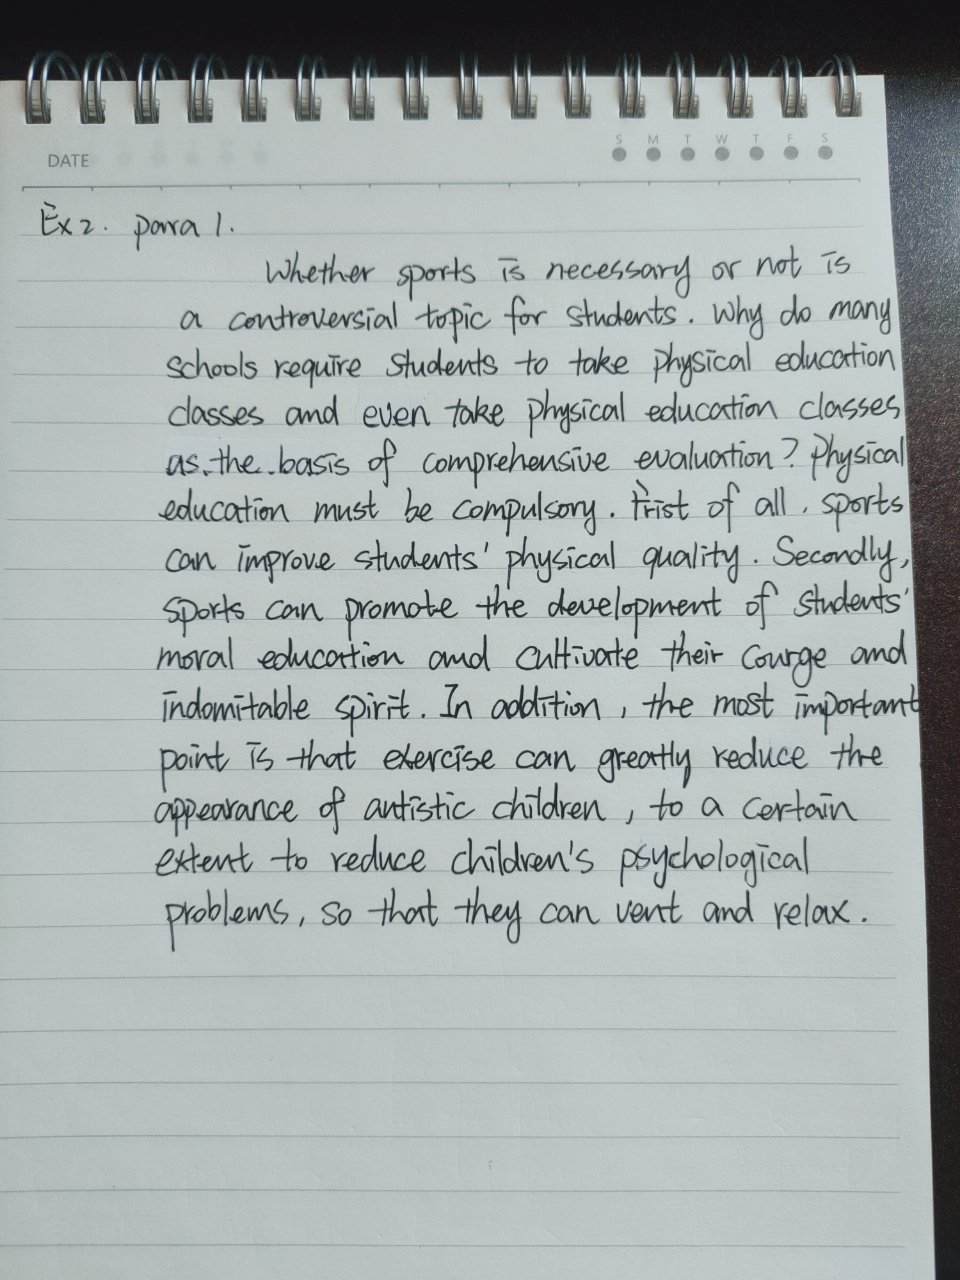 DATE
S M T W T F S
Ex 2. para 1.
Whether sports is necessary or not is
a controversial topic for students. Why do many
schools require students to take physical education
classes and even take physical education classes
as the basis of comprehensive evaluation? Physical
education must be compulsory. Frist of all, sports
can improve students' physical quality. Secondly,
sports can promote the development of students'
moral education and cultivate their courge and
indomitable spirit. In addition, the most important
point is that exercise can greatly reduce the
appearance of antistic children, to a certain
extent to reduce children's psychological
problems, so that they can vent and relax.